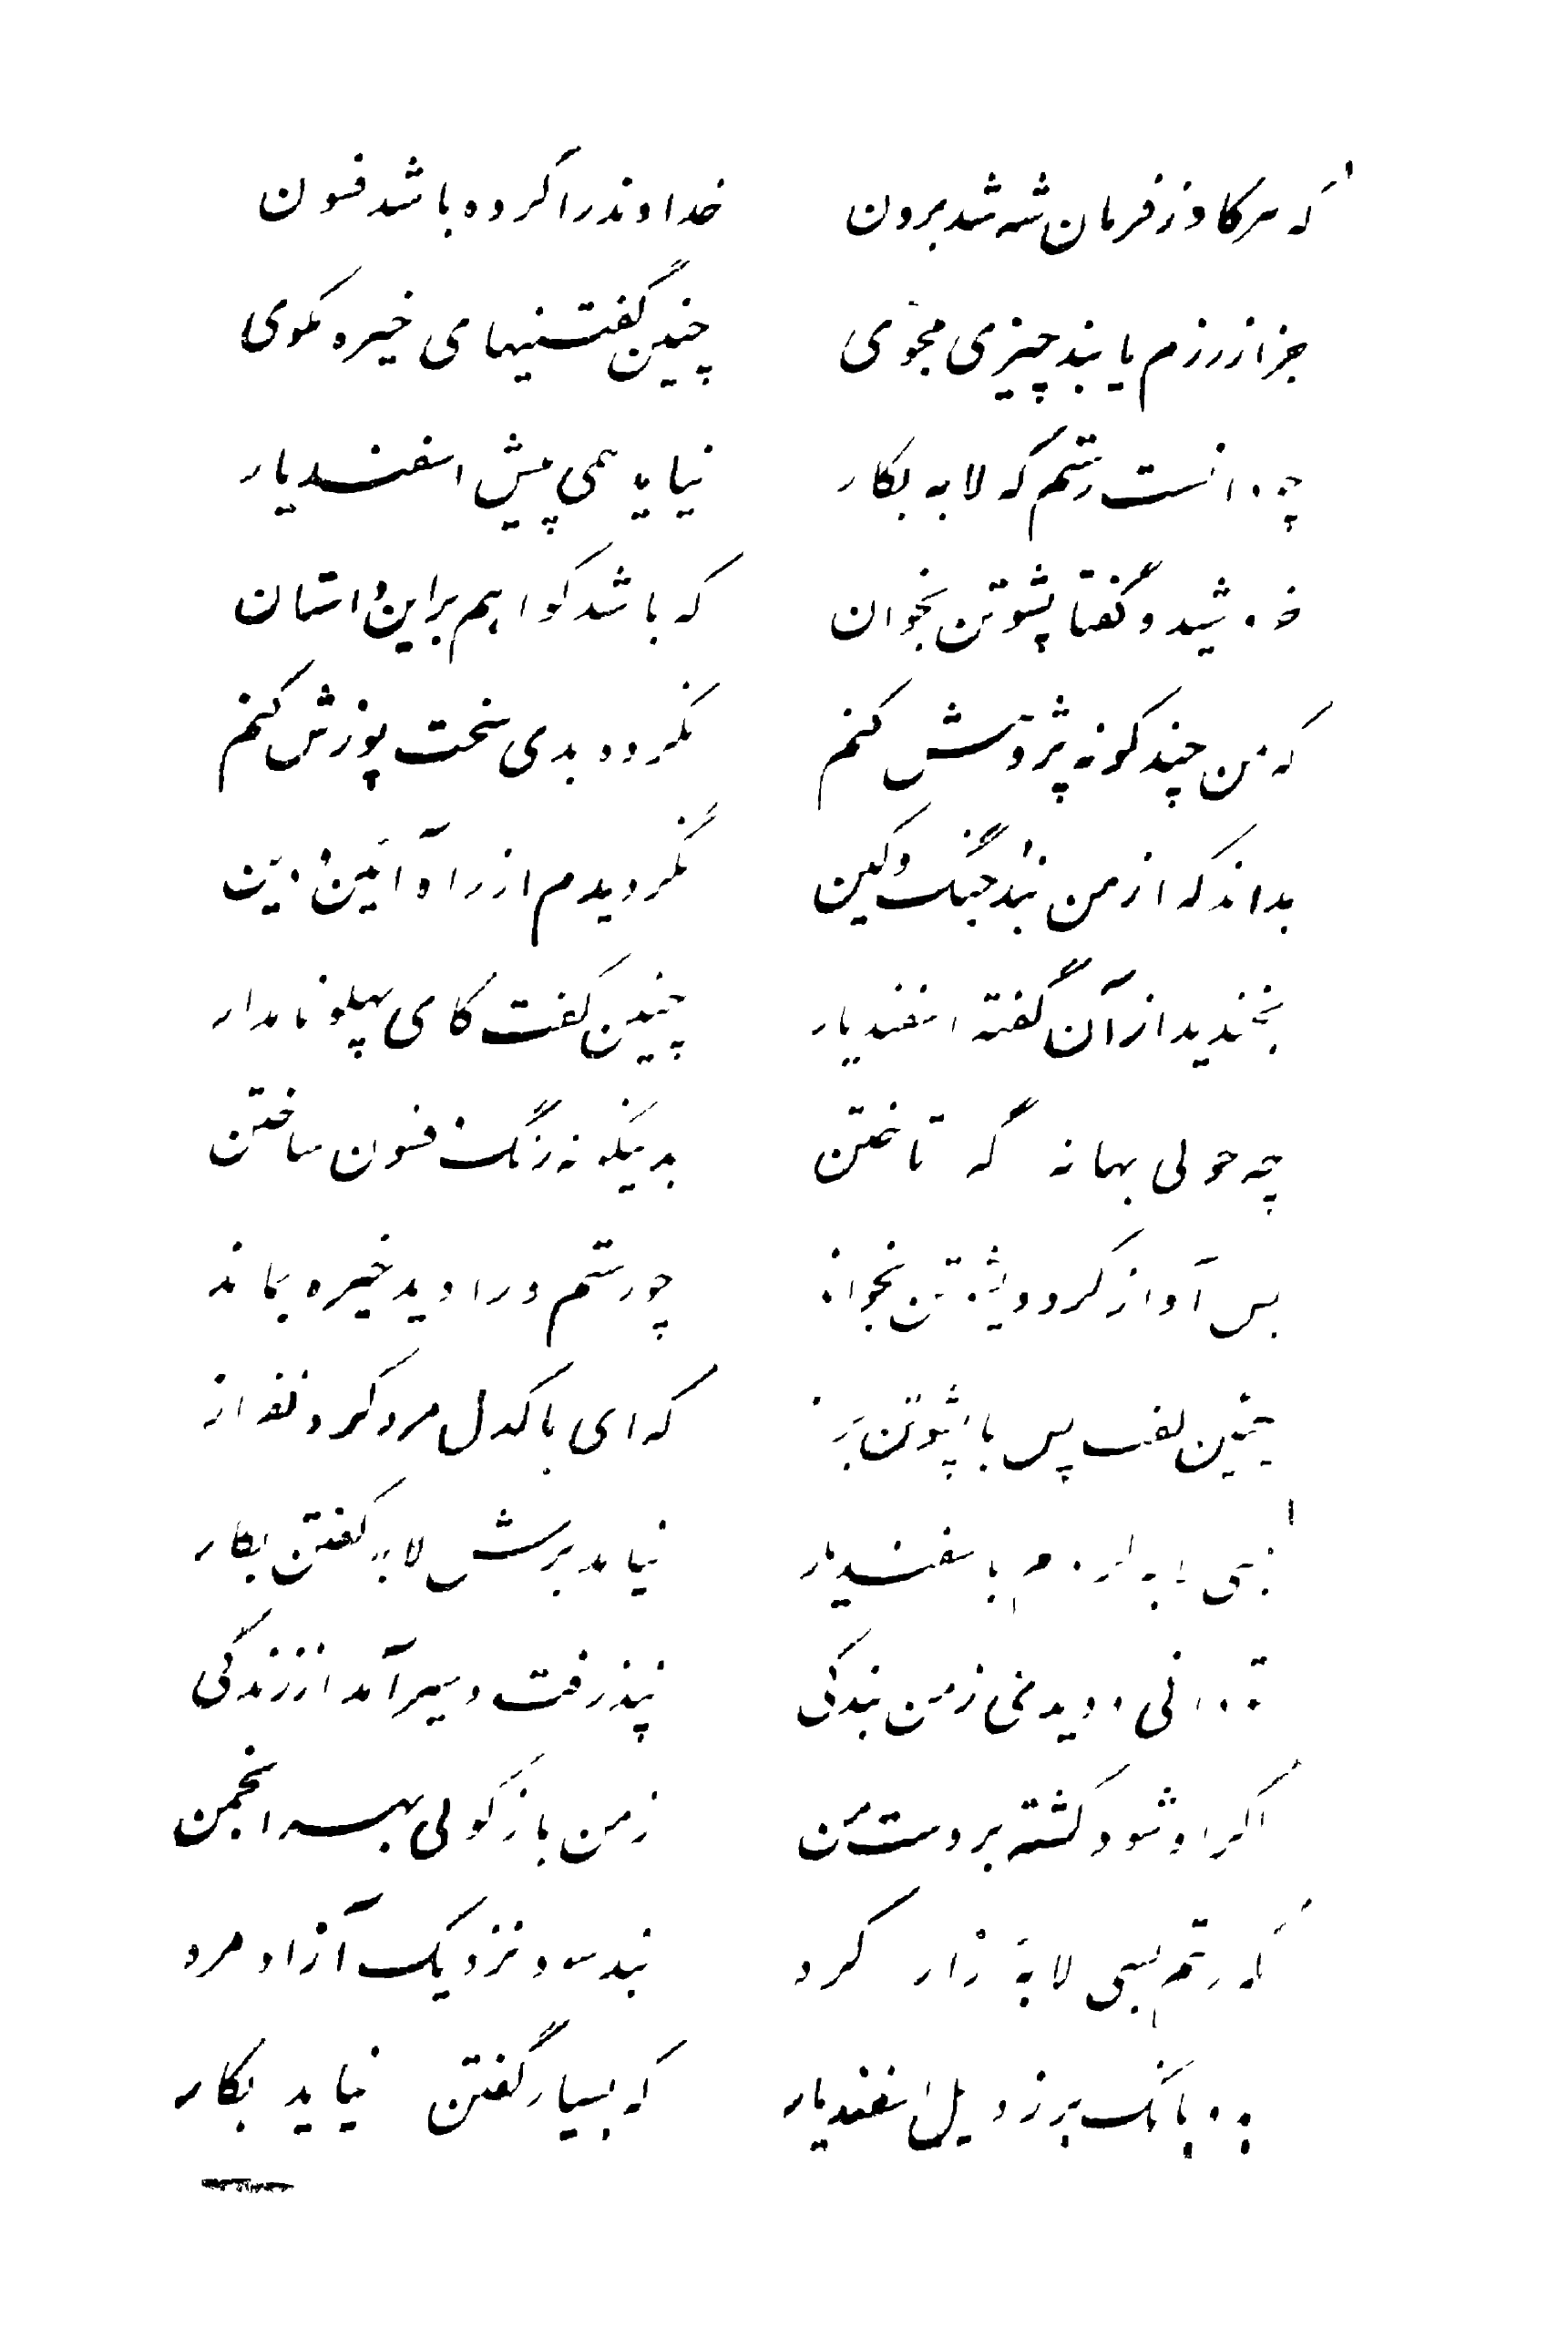 که هرکاو ز فرمان شه شد برون خداوند را کرده باشد فسون
جز از رزم یا بند چیزی مجوی چنین گفتنیهای خیره مگوی
چو دانست رستم که لابه بکار نیاید همی پیش اسفندیار
خروشید و گفتا پشوتن بخوان که باشد گوا هم براین داستان
که من چند گونه پژوهش کنم نکرده بدی سخت پوزش کنم
بداند که از من نبد جنگ و کین نگردیدم از راه آئین و دین
بخندید از آن گفته اسفندیار چنین گفت کای پهلو نامدار
چه جوئی بهانه گه تاختن بدینگونه رنگ فسون ساختن
پس آواز کرد و پشوتن بخواند چو رستم ورا دید خیره بماند
چنین گفت پس با پشوتن براز که ای پاکدل مرد گردنفراز
بسی لابه کردم باسفندیار نیامد برش لابه گفتن بکار
تو دانی و دیدی ز من بندگی نپذرفت و سیر آمد از زندگی
اگر او شود کشته بر دست من ز من بازگوئی بهر انجمن
که رستم بسی لابهٔ زار کرد نبد سود نزدیک آزاد مرد
بدو بانگ برزد یل اسفندیار که بسیار گفتن نیاید بکار